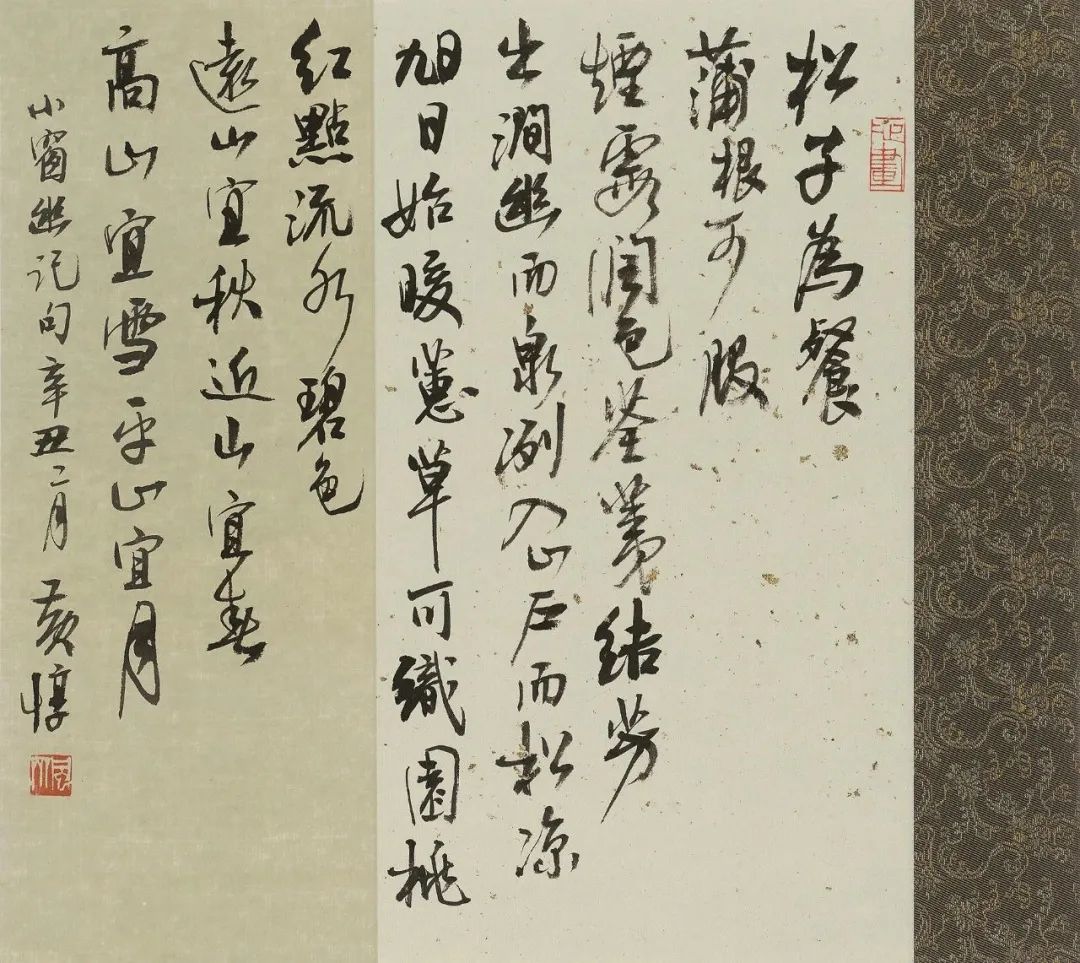 松子為餐
蒲根可服
煙霞潤色荃荑結芳
出澗幽而泉冽入山戶而松涼
旭日始暖蕙草可織園桃
紅點流水碧色
遠山宜秋近山宜春
高山宜雪平山宜月
小窗幽記句辛丑二月 黃惇